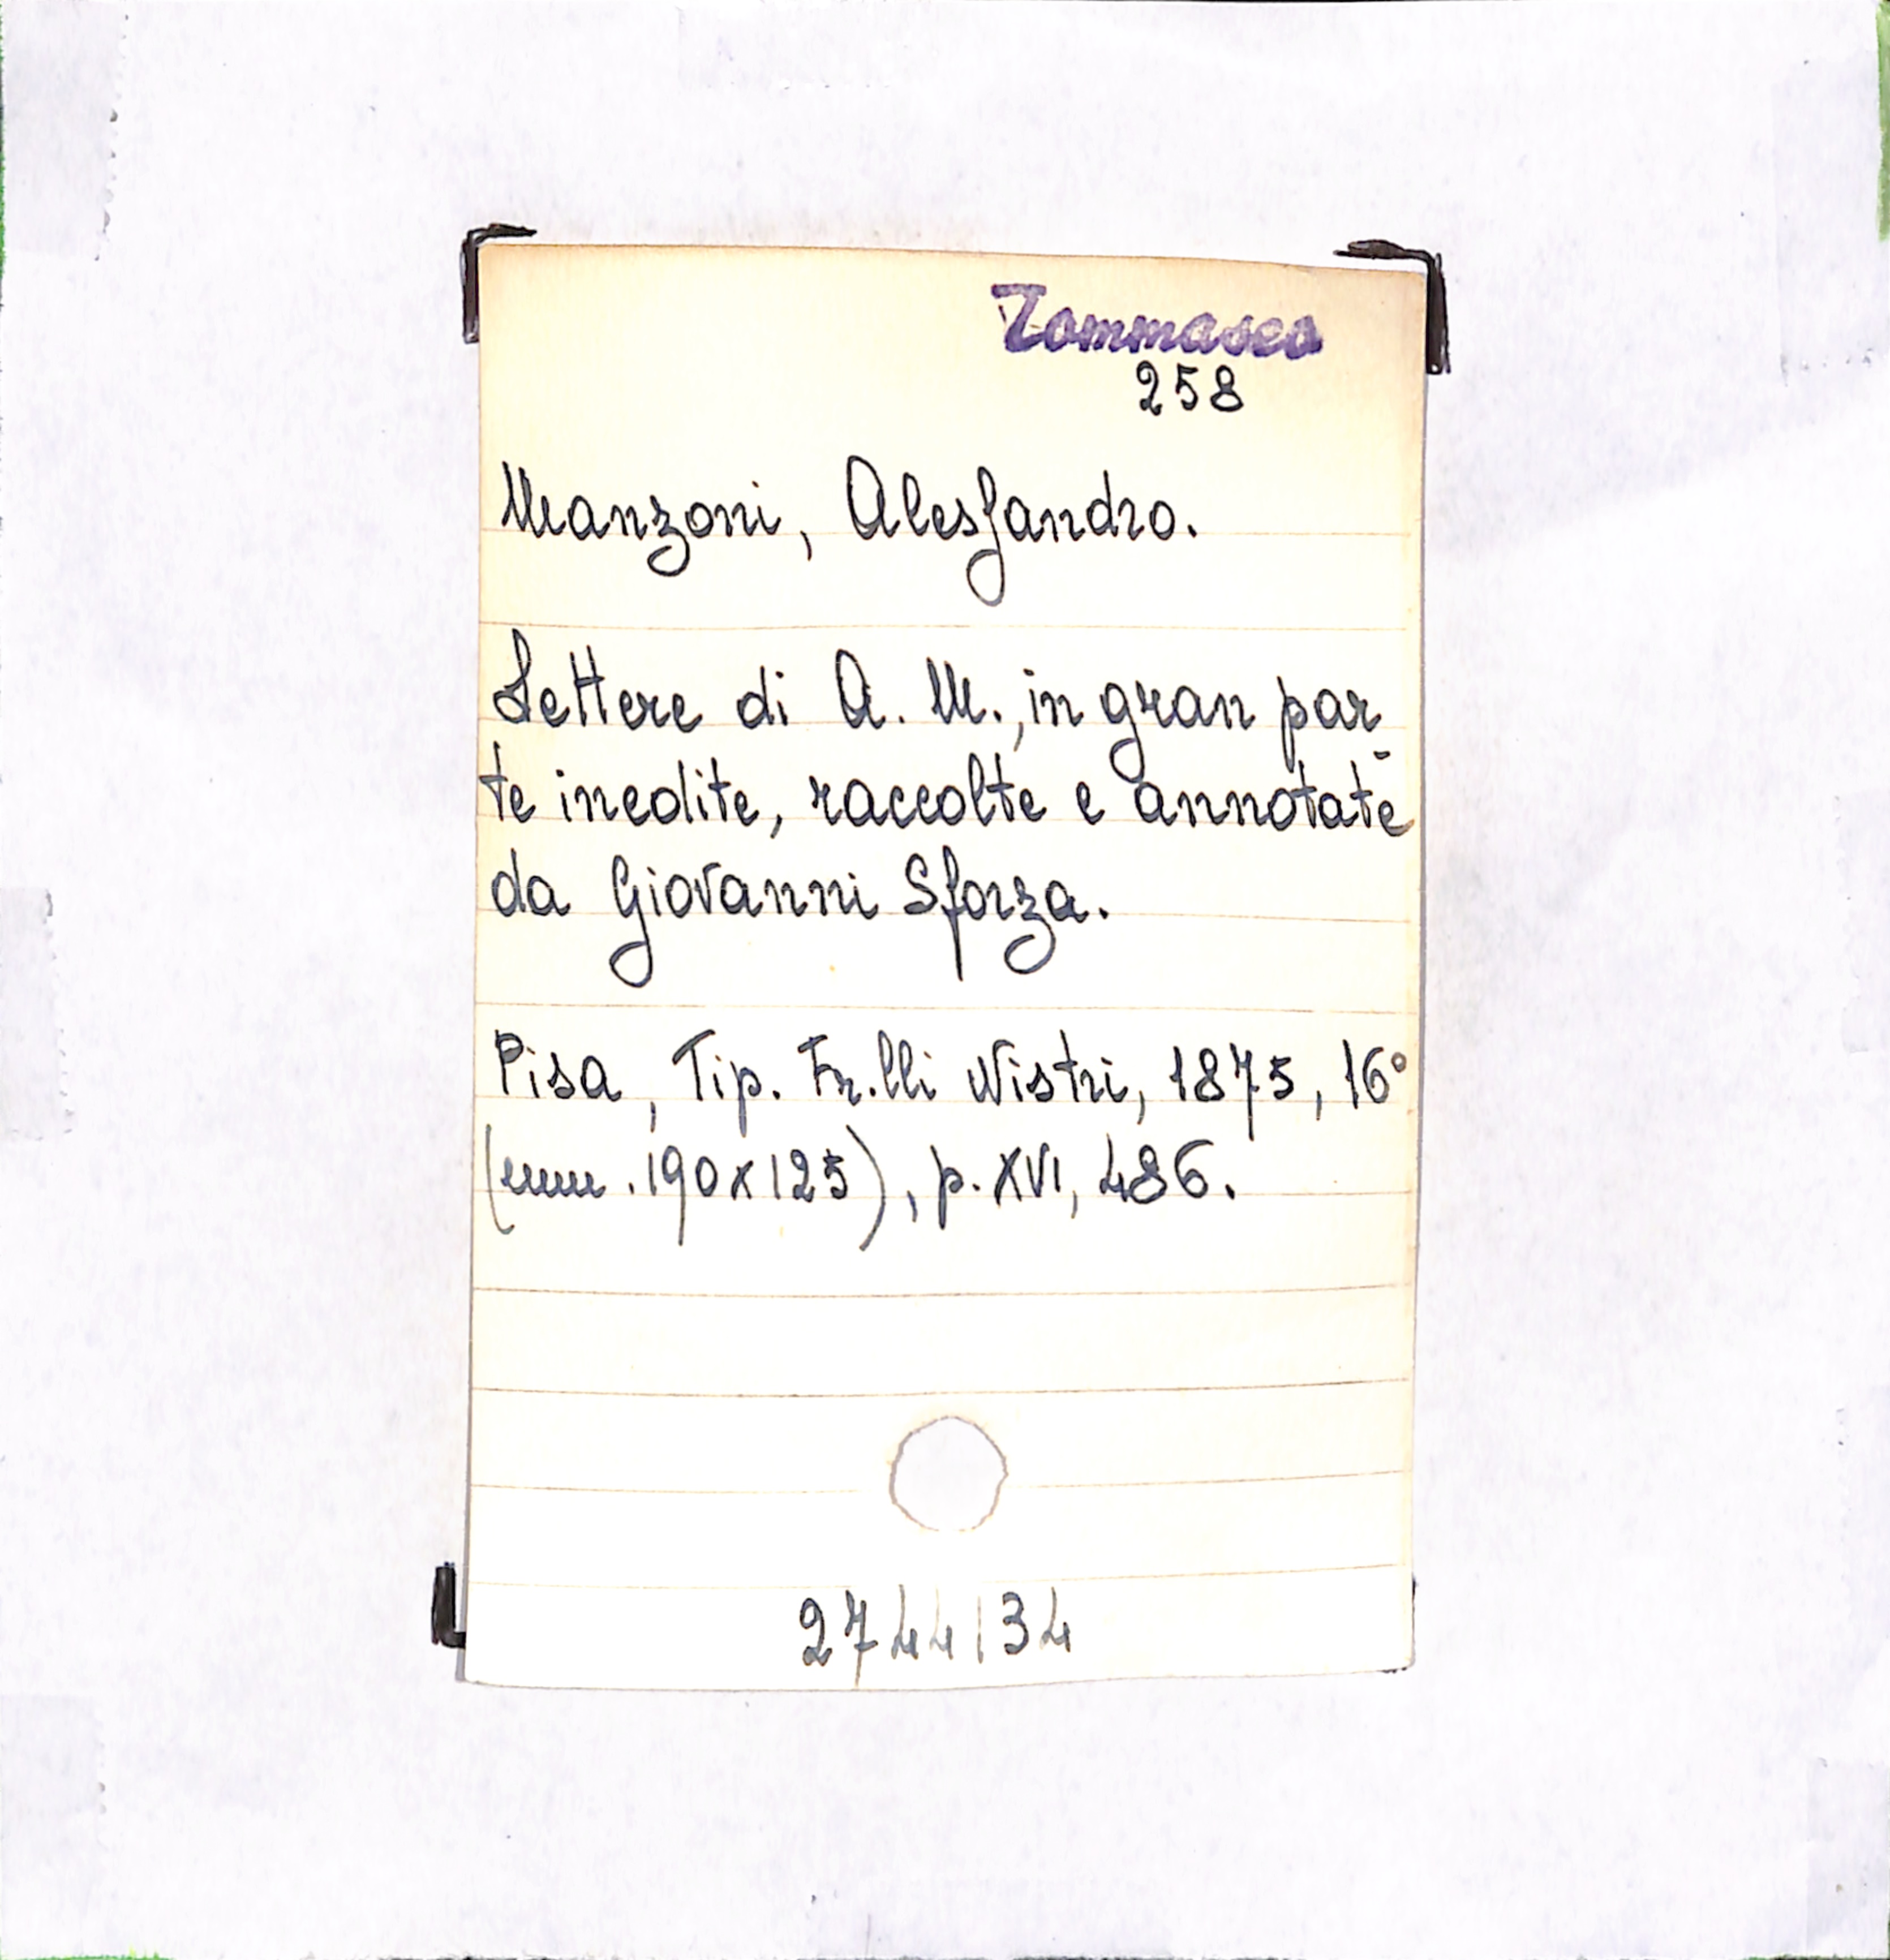 Tommaseo
258
Manzoni, Alessandro.
Lettere di A. M., in gran par-
te inedite, raccolte e annotate
da Giovanni Sforza.
Pisa, Tip. Fr.lli Nistri, 1875, 16°
(mm. 190x125), p. XVI, 486.
2744134